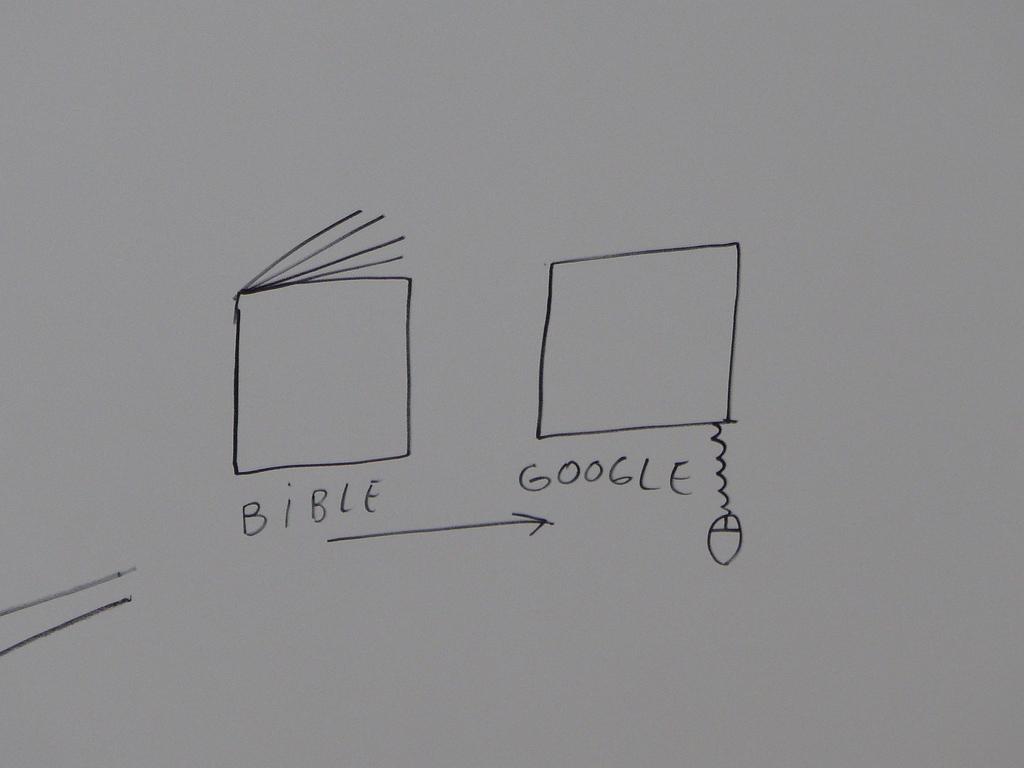 BiBLE
GOOGLE